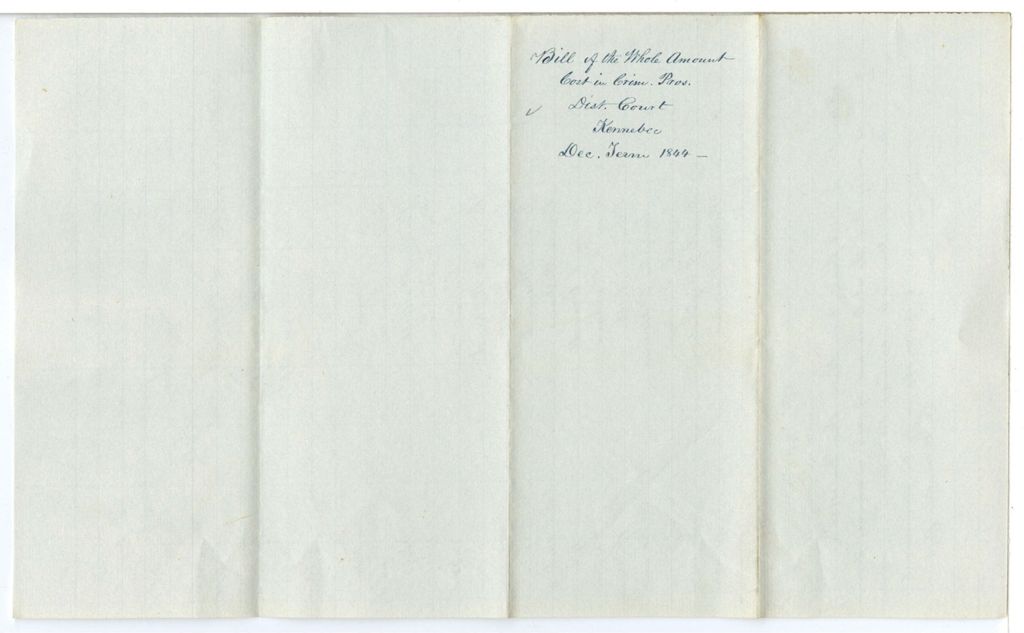 Bill of the Whole Amount
Cost in Crim. Pros.
Dist. Court
Kennebec
Dec. Term 1844 –